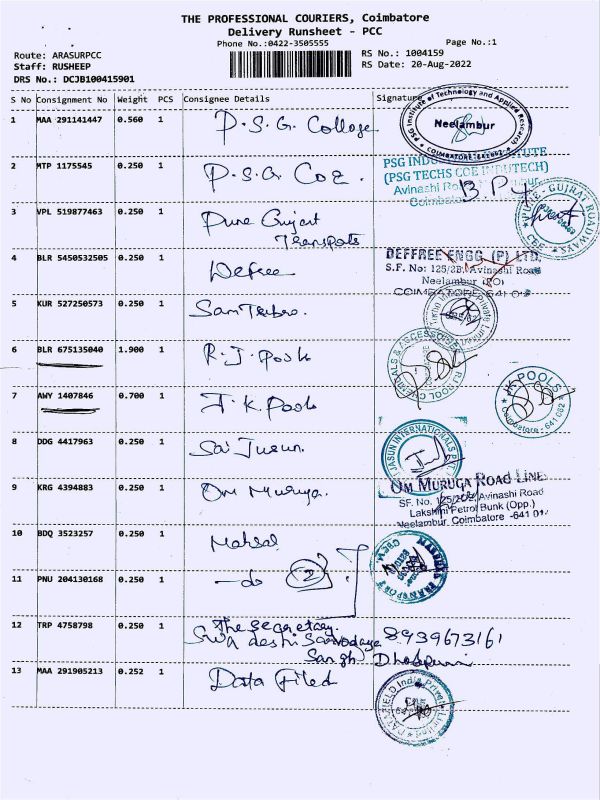 THE PROFESSIONAL COURIERS, Coimbatore
Delivery Runsheet - PCC
Phone No.:0422-3505555
Page No.:1
Route: ARASURPCC
RS No.: 1004159
Staff: RUSHEEP
RS Date: 20-Aug-2022
DRS No.: DCJB100415901
S No Consignment No Weight PCS Consignee Details Signature
1 MAA 291141447 0.560 1 P.S.G. College
PSG Institute of Technology and Applied Research
Neelambur
COIMBATORE-641 062
2 MTP 1175545 0.250 1 P.S.G COE.
PSG INDUSTRIAL INSTITUTE
(PSG TECHS COE INDUTECH)
Avinashi Road, Neelambur,
Coimbatore
3 VPL 519877463 0.250 1 Pune Gujart
Transpots
PUNE-GUJRAT ROADWAYS
CBE
4 BLR 5450532505 0.250 1 Defree
DEFFREE ENGG (P) LTD.
S.F. No: 125/2B, Avinashi Road
Neelambur (PO)
COIMBATORE-641 0
5 KUR 527250573 0.250 1
Private Limited
6 BLR 675135040 1.900 1 R.J. Pools
CHEMICALS & ACCESSORIES
7 AWY 1407846 0.700 1 J.K. Pools
JK POOLS
Coimbatore - 641 062
8 DDG 4417963 0.250 1 Sai Jusun.
JASUN INTERNATIONALS PVT
9 KRG 4394883 0.250 1 Om Muruga.
OM MURUGA ROAD LINE
SF. No. 125/2C2, Avinashi Road
Lakshmi Petrol Bunk (Opp.)
Neelambur, Coimbatore -641 0
10 BDQ 3523257 0.250 1
TRANSPORT
11 PNU 204130168 0.250 1 - do (2)
12 TRP 4758798 0.250 1 The Secretary.
Swadeshi Sarvodaya 8939673161
Sangh
13 MAA 291905213 0.252 1 Data Filed
DATAFIELD India Private Limited